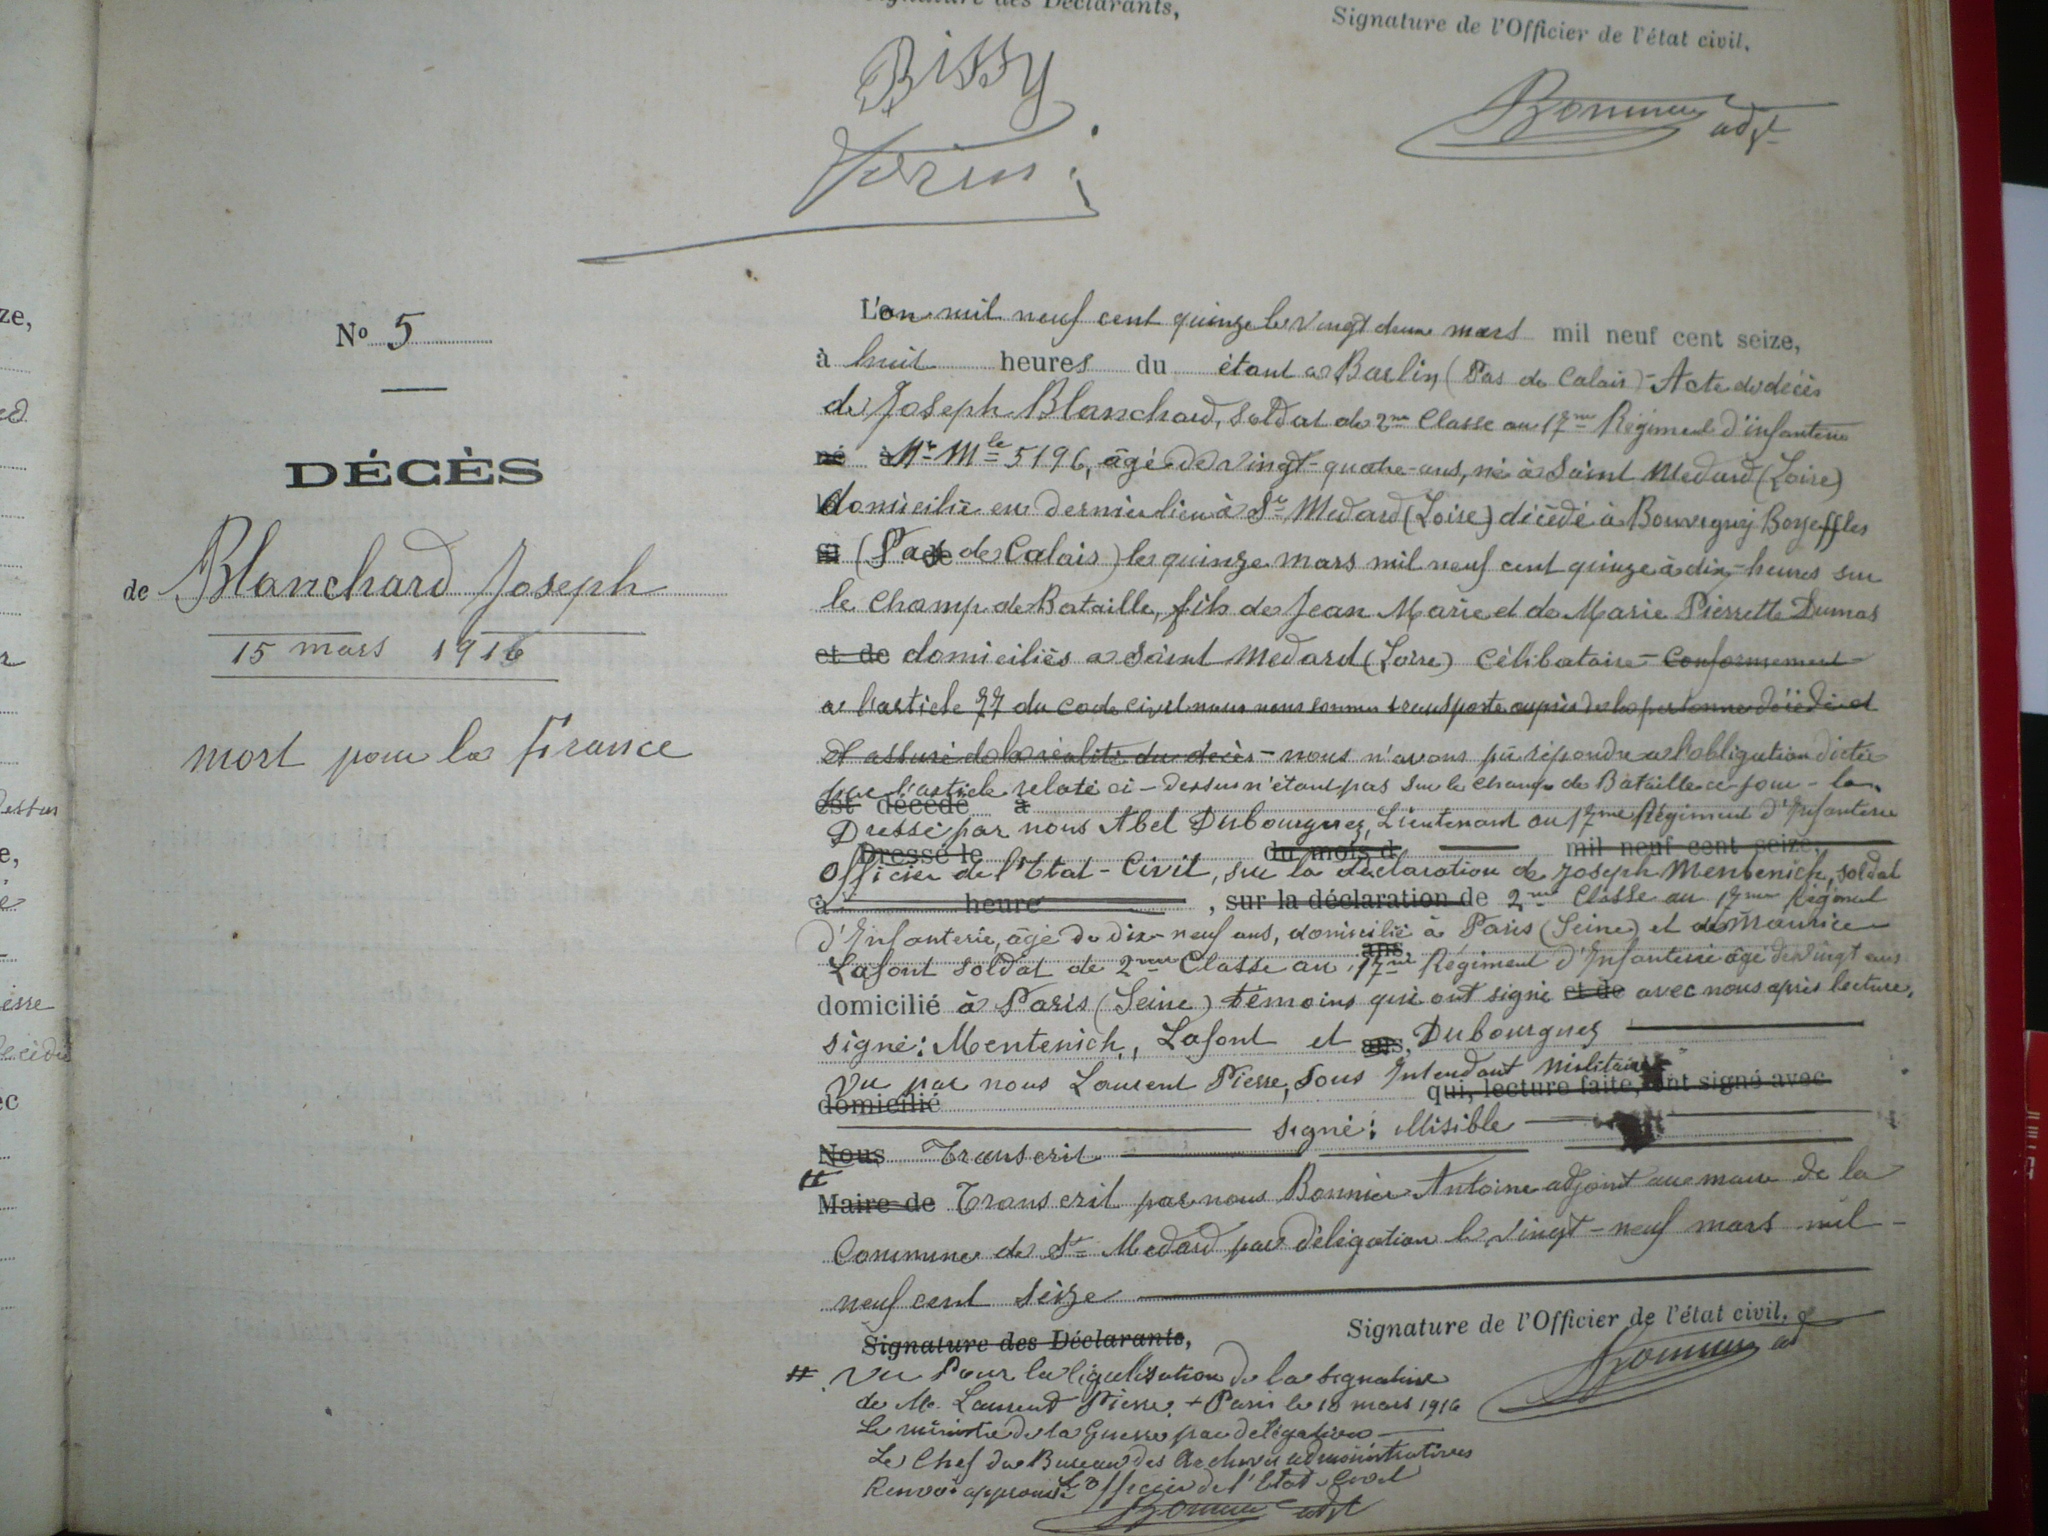 Signature des Déclarants,
Signature de l'Officier de l'état civil,
Bissy
Bonnier adjt
ze,
No 5
DÉCÈS
de Blanchard Joseph
15 mars 1916
mort pour la France
L'an mil neuf cent quinze le vingt deux mars mil neuf cent seize,
à huit heures du étant à Barlin (Pas de Calais) - Acte de décès
de Joseph Blanchard, soldat de 2me Classe au 17me Régiment d'infanterie
né à Nr Mle 5196, âgé de vingt-quatre-ans, né à Saint Medard (Loire)
domicilié en dernier lieu à St Medard (Loire) décédé à Bouvigny Boyeffles
(Pas de Calais) le quinze mars mil neuf cent quinze à dix-heures sur
le champ de Bataille, fils de Jean Marie et de Marie Pierrette Dumas
et de domiciliés à Saint Medard (Loire) Célibataire - Conformement
a l'article 77 du code civil nous nous sommes transporté auprès de la personne décédée et
et assuré de la réalité du decès - nous n'avons pu répondre a l'obligation dictée
par l'article relaté ci-dessus n'étant pas sur le champ de Bataille ce jour-la.
est décédé à
Dressé par nous Abel Dubourguez, Lieutenant au 17me Régiment d'Infanterie
Dressé le du mois d mil neuf cent seize,
Officier de l'Etat-Civil, sur la déclaration de Joseph Mentenich, soldat
à heure , sur la déclaration de 2me Classe au 17me Régiment
d'Infanterie, âgé de dix-neuf ans, domicilié à Paris (Seine) et de Maurice
ans
Lafont soldat de 2me Classe au 17me Régiment d'Infanterie âgé de vingt ans
domicilié à Paris (Seine) témoins qui ont signé et de avec nous après lecture,
signé: Mentenich, Lafont et ans, Dubourguez
Vu par nous Laurent Pierre, Sous Intendant Militaire
domicilié qui, lecture faite, ont signé avec
signé: Illisible
Nous Transcrit
Maire de Transcrit par nous Bonnier Antoine adjoint au maire de la
Commune de St Medard par délégation le vingt-neuf mars mil
neuf cent seize
Signature des Déclarants,
Signature de l'Officier de l'état civil,
Bonnier adj
# Vu Pour la légalisation de la signature
de Mr Laurent Pierre. + Paris le 18 mars 1916
Le ministre de la Guerre par délégation
Le Chef du Bureau des Archives administratives
Renvoi approuvé L'Officier de l'Etat Civil
Bonnier adjt